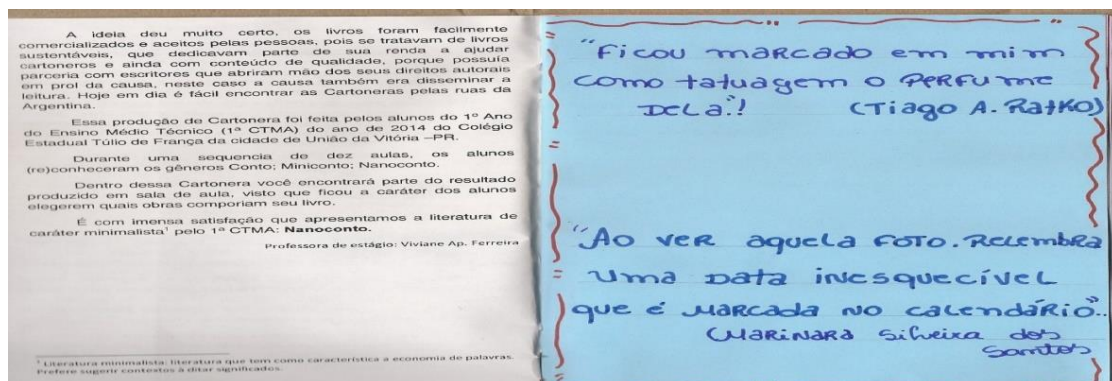 A ideia deu muito certo, os livros foram facilmente
comercializados e aceitos pelas pessoas, pois se tratavam de livros
sustentáveis, que dedicavam parte de sua renda a ajudar
cartoneros e ainda com conteúdo de qualidade, porque possuía
parceria com escritores que abriram mão dos seus direitos autorais
em prol da causa, neste caso a causa também era disseminar a
leitura. Hoje em dia é fácil encontrar as Cartoneras pelas ruas da
Argentina.
Essa produção de Cartonera foi feita pelos alunos do 1º Ano
do Ensino Médio Técnico (1ª CTMA) do ano de 2014 do Colégio
Estadual Túlio de França da cidade de União da Vitória –PR.
Durante uma sequencia de dez aulas, os alunos
(re)conheceram os gêneros Conto; Miniconto; Nanoconto.
Dentro dessa Cartonera você encontrará parte do resultado
produzido em sala de aula, visto que ficou a caráter dos alunos
elegerem quais obras comporiam seu livro.
É com imensa satisfação que apresentamos a literatura de
caráter minimalista¹ pelo 1ª CTMA: Nanoconto.
Professora de estágio: Viviane Ap. Ferreira
¹ Literatura minimalista: literatura que tem como característica a economia de palavras.
Prefere sugerir contextos à ditar significados.
"Ficou marcado em mim
como tatuagem o perfume
dela"!
(Tiago A. Ratko)
"Ao ver aquela foto. Relembra
uma data inesquecível
que é marcada no calendário"..
(Marinara Silveira dos
Santos